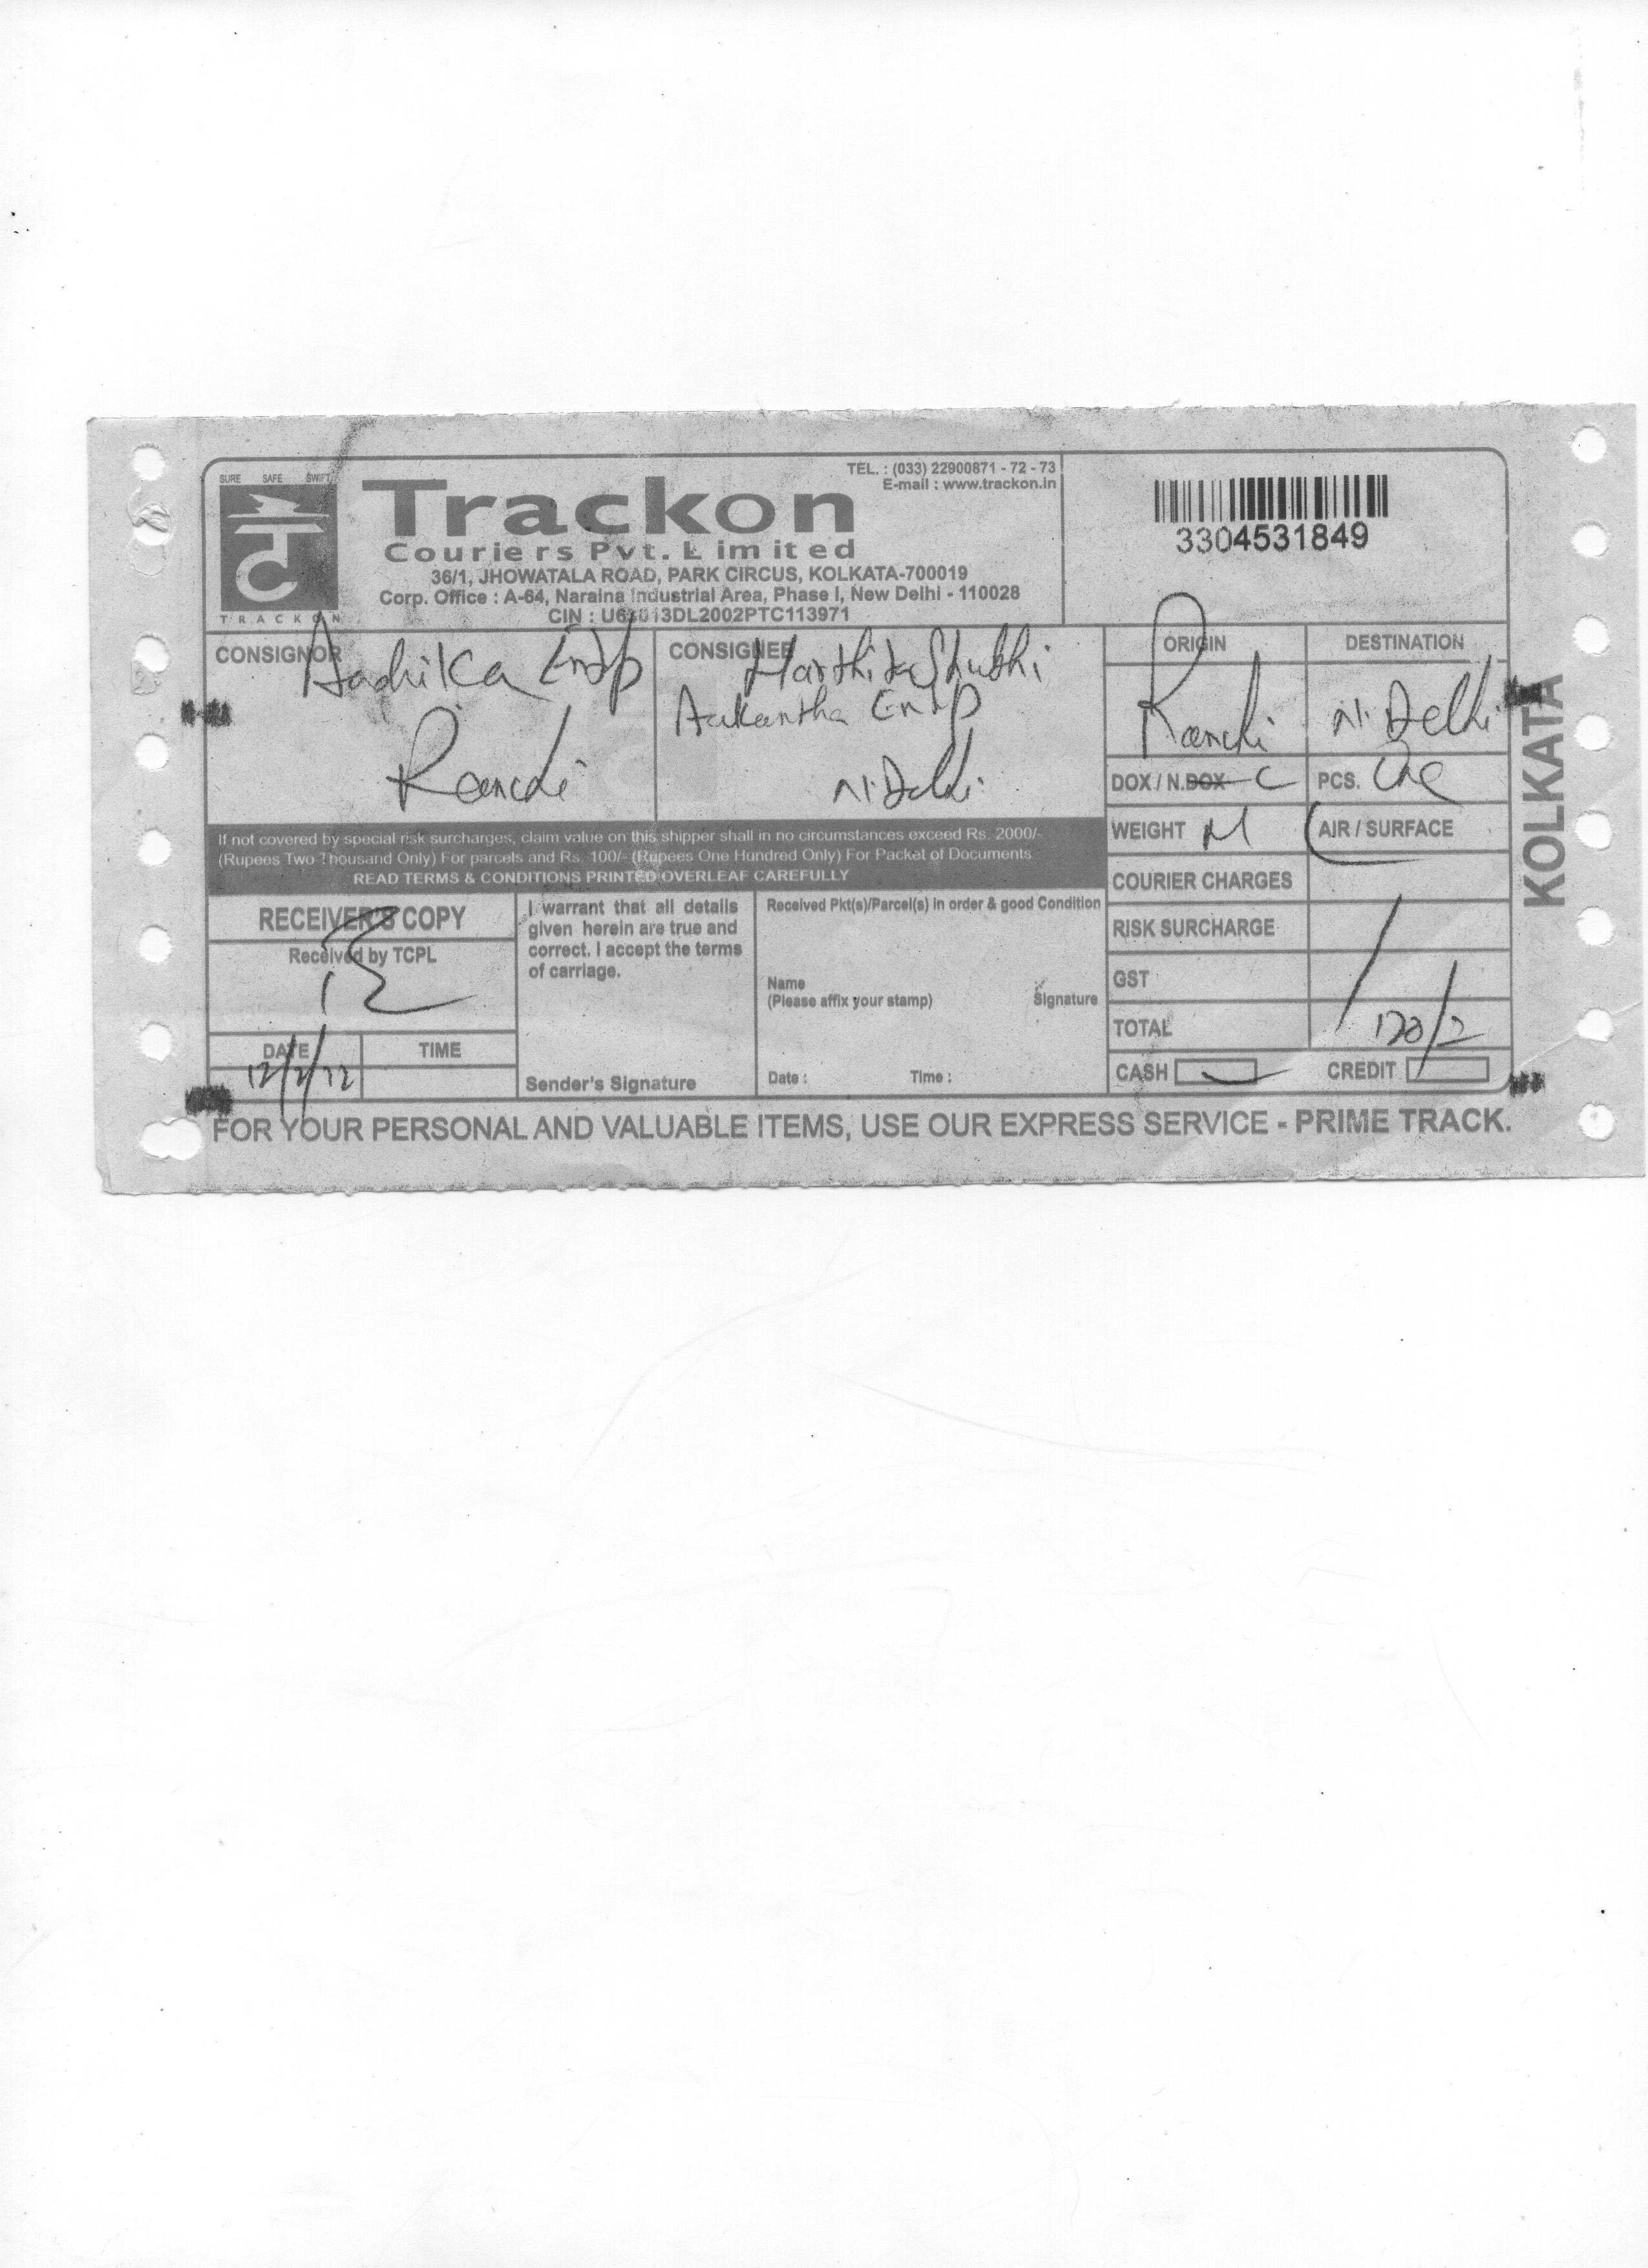 SURE SAFE SWIFT
TRACKON
Trackon
Couriers Pvt. Limited
TEL. : (033) 22900871 - 72 - 73
E-mail : www.trackon.in
36/1, JHOWATALA ROAD, PARK CIRCUS, KOLKATA-700019
Corp. Office : A-64, Naraina Industrial Area, Phase I, New Delhi - 110028
CIN : 013DL2002PTC113971
3304531849
CONSIGNOR
Ranchi
CONSIGNEE
N. Delhi
ORIGIN
Ranchi
DESTINATION
N. Delhi
DOX / N.DOX
PCS. One
WEIGHT
AIR / SURFACE
COURIER CHARGES
RISK SURCHARGE
GST
TOTAL
CASH
CREDIT
KOLKATA
If not covered by special risk surcharges, claim value on this shipper shall in no circumstances exceed Rs. 2000/-
(Rupees Two Thousand Only) For parcels and Rs. 100/- (Rupees One Hundred Only) For Packet of Documents
READ TERMS & CONDITIONS PRINTED OVERLEAF CAREFULLY
RECEIVER'S COPY
Received by TCPL
DATE
TIME
I warrant that all details
given herein are true and
correct. I accept the terms
of carriage.
Sender's Signature
Received Pkt(s)/Parcel(s) in order & good Condition
Name
(Please affix your stamp)
Signature
Date :
Time :
FOR YOUR PERSONAL AND VALUABLE ITEMS, USE OUR EXPRESS SERVICE - PRIME TRACK.